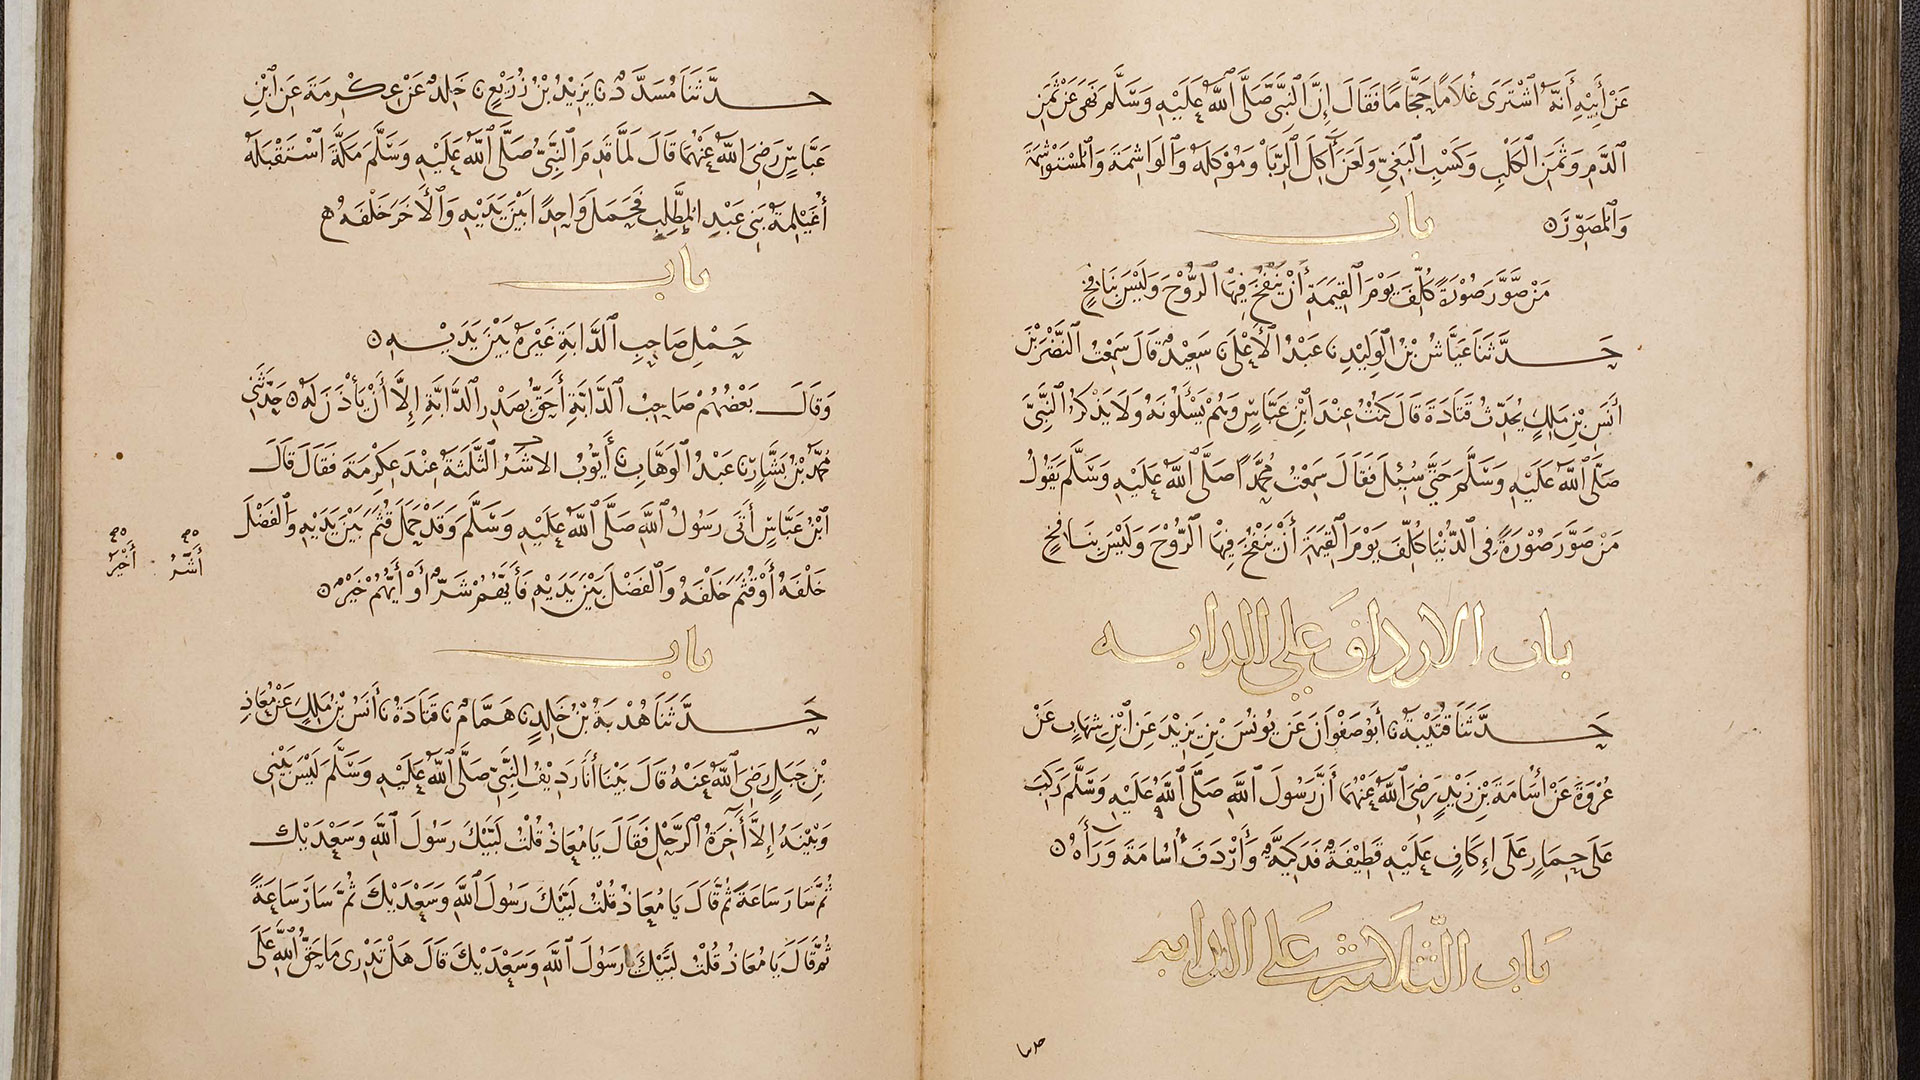 عَنْ أَبِيْهِ أَنَّهُ اشْتَرَى غُلَامًا حَجَّامًا فَقَالَ إِنَّ النَّبِيَّ صَلَّى اللَّهُ عَلَيْهِ وَسَلَّمَ نَهَى عَنْ ثَمَنِ
الدَّمِ وَثَمَنِ الْكَلْبِ وَكَسْبِ الْبَغِيِّ وَلَعَنَ آكِلَ الرِّبَا وَمُؤْكِلَهُ وَالْوَاشِمَةَ وَالْمُسْتَوْشِمَةَ
وَالْمُصَوِّرَ ۝ باب
مَنْ صَوَّرَ صُوْرَةً كُلِّفَ يَوْمَ الْقِيٰمَةِ أَنْ يَنْفُخَ فِيْهَا الرُّوْحَ وَلَيْسَ بِنَافِخٍ
حَدَّثَنَا عَيَّاشُ بْنُ الْوَلِيْدِ نا عَبْدُ الْأَعْلَى نا سَعِيْدٌ قَالَ سَمِعْتُ النَّضْرَ بْنَ
أَنَسِ بْنِ مٰلِكٍ يُحَدِّثُ قَتَادَةَ قَالَ كُنْتُ عِنْدَ ابْنِ عَبَّاسٍ وَهُمْ يَسْأَلُوْنَهُ وَلَا يَذْكُرُ النَّبِيَّ
صَلَّى اللَّهُ عَلَيْهِ وَسَلَّمَ حَتَّى سُئِلَ فَقَالَ سَمِعْتُ مُحَمَّدًا صَلَّى اللَّهُ عَلَيْهِ وَسَلَّمَ يَقُوْلُ
مَنْ صَوَّرَ صُوْرَةً فِي الدُّنْيَا كُلِّفَ يَوْمَ الْقِيٰمَةِ أَنْ يَنْفُخَ فِيْهَا الرُّوْحَ وَلَيْسَ بِنَافِخٍ
باب الارداف على الدابه
حَدَّثَنَا قُتَيْبَةُ نا أَبُوْ صَفْوَانَ عَنْ يُوْنُسَ بْنِ يَزِيْدَ عَنِ ابْنِ شِهَابٍ عَنْ
عُرْوَةَ عَنْ أُسَامَةَ بْنِ زَيْدٍ رَضِيَ اللَّهُ عَنْهُمَا أَنَّ رَسُوْلَ اللَّهِ صَلَّى اللَّهُ عَلَيْهِ وَسَلَّمَ رَكِبَ
عَلَى حِمَارٍ عَلَى إِكَافٍ عَلَيْهِ قَطِيْفَةٌ فَدَكِيَّةٌ وَأَرْدَفَ أُسَامَةَ وَرَاءَهُ ۝
بَاب الثَّلَاثَة عَلَى الدابه
حدثنا
حَدَّثَنَا مُسَدَّدٌ نا يَزِيْدُ بْنُ زُرَيْعٍ نا خَالِدٌ عَنْ عِكْرِمَةَ عَنِ ابْنِ
عَبَّاسٍ رَضِيَ اللَّهُ عَنْهُمَا قَالَ لَمَّا قَدِمَ النَّبِيُّ صَلَّى اللَّهُ عَلَيْهِ وَسَلَّمَ مَكَّةَ اسْتَقْبَلَهُ
أُغَيْلِمَةُ بَنِي عَبْدِ الْمُطَّلِبِ فَحَمَلَ وَاحِدًا بَيْنَ يَدَيْهِ وَالْآخَرَ خَلْفَهُ
باب
حَمْلِ صَاحِبِ الدَّابَّةِ غَيْرَهُ بَيْنَ يَدَيْهِ ۝
وَقَالَ بَعْضُهُمْ صَاحِبُ الدَّابَّةِ أَحَقُّ بِصَدْرِ الدَّابَّةِ إِلَّا أَنْ يَأْذَنَ لَهُ ۝ حَدَّثَنِي
مُحَمَّدُ بْنُ بَشَّارٍ نا عَبْدُ الْوَهَّابِ نا أَيُّوْبُ الاشَرُّ الثَّلٰثَةُ عِنْدَ عِكْرِمَةَ فَقَالَ قَالَ
ابْنُ عَبَّاسٍ أَتَى رَسُوْلُ اللَّهِ صَلَّى اللَّهُ عَلَيْهِ وَسَلَّمَ وَقَدْ حَمَلَ قُثَمَ بَيْنَ يَدَيْهِ وَالْفَضْلَ
خَلْفَهُ أَوْ قُثَمَ خَلْفَهُ وَالْفَضْلَ بَيْنَ يَدَيْهِ فَأَيُّهُمْ شَرٌّ أَوْ أَيُّهُمْ خَيْرٌ ۝
أَشَرُّ أَخْيَرُ
باب
حَدَّثَنَا هُدْبَةُ بْنُ خَالِدٍ نا هَمَّامٌ نا قَتَادَةُ نا أَنَسُ بْنُ مٰلِكٍ عَنْ مُعَاذِ
بْنِ جَبَلٍ رَضِيَ اللَّهُ عَنْهُ قَالَ بَيْنَا أَنَا رَدِيْفُ النَّبِيِّ صَلَّى اللَّهُ عَلَيْهِ وَسَلَّمَ لَيْسَ بَيْنِي
وَبَيْنَهُ إِلَّا آخِرَةُ الرَّحْلِ فَقَالَ يَا مُعَاذُ قُلْتُ لَبَّيْكَ رَسُوْلَ اللَّهِ وَسَعْدَيْكَ
ثُمَّ سَارَ سَاعَةً ثُمَّ قَالَ يَا مُعَاذُ قُلْتُ لَبَّيْكَ رَسُوْلَ اللَّهِ وَسَعْدَيْكَ ثُمَّ سَارَ سَاعَةً
ثُمَّ قَالَ يَا مُعَاذُ قُلْتُ لَبَّيْكَ رَسُوْلَ اللَّهِ وَسَعْدَيْكَ قَالَ هَلْ تَدْرِي مَا حَقُّ اللَّهِ عَلَى